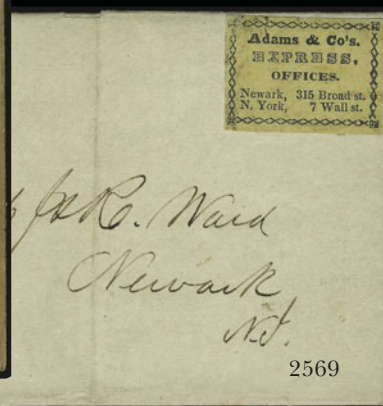 Adams & Co's.
EXPRESS,
OFFICES.
Newark, 315 Broad st.
N. York, 7 Wall st.
R. Ward
Newark
N.J.
2569